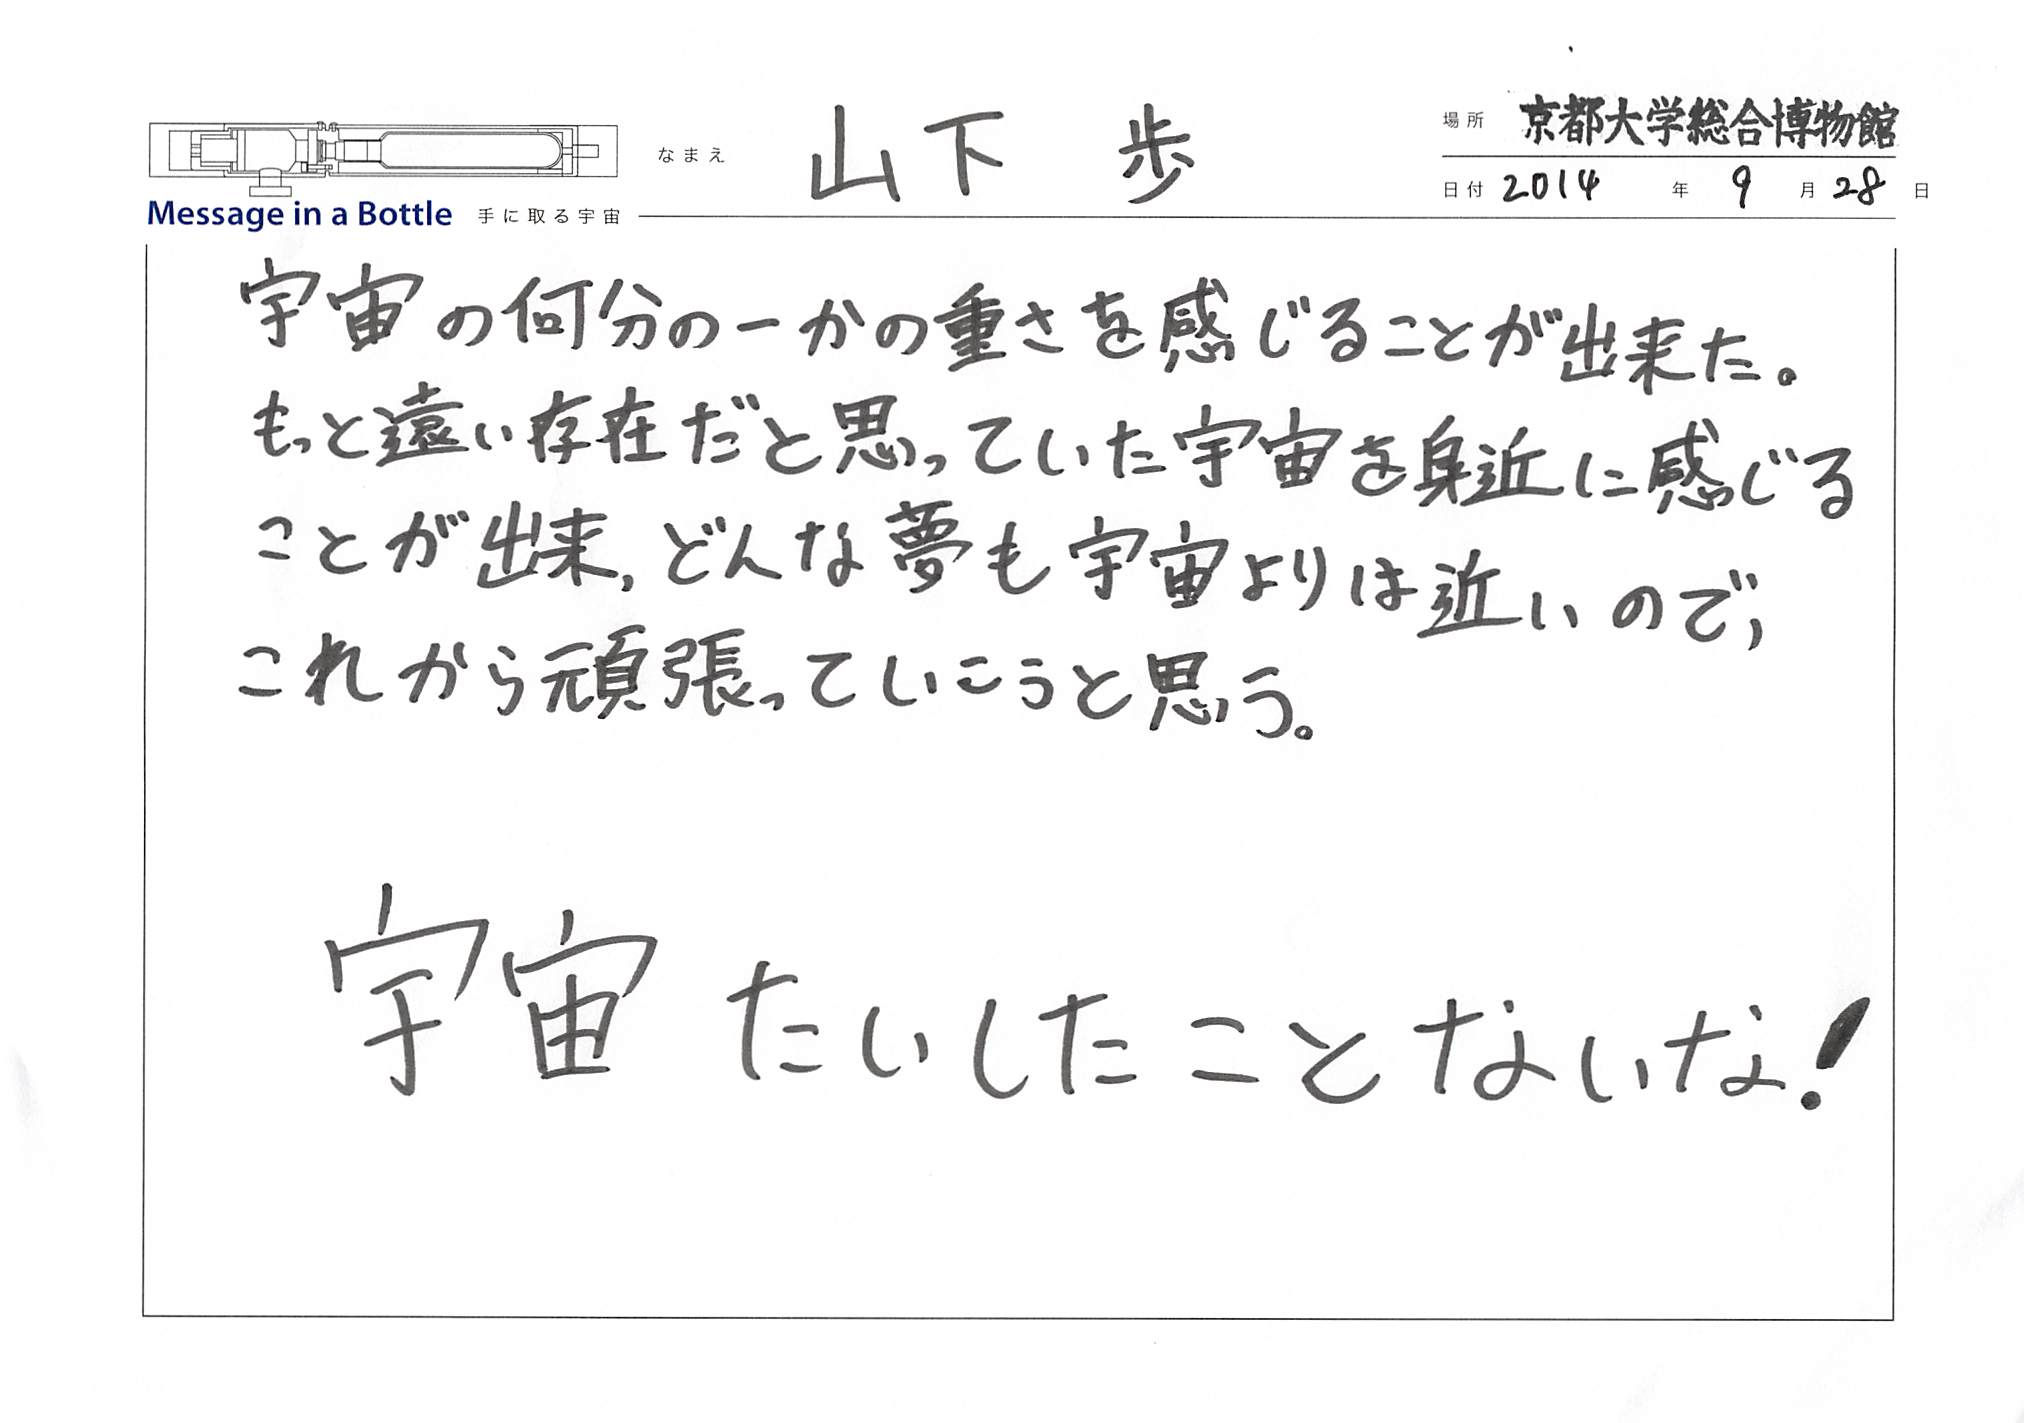 場所 京都大学総合博物館
なまえ 山下 歩
日付 2014 年 9 月 28 日
Message in a Bottle 手に取る宇宙
宇宙の何分の一かの重さを感じることが出来た。
もっと遠い存在だと思っていた宇宙を身近に感じる
ことが出来,どんな夢も宇宙よりは近いので,
これから頑張っていこうと思う。
宇宙 たいしたことないな!